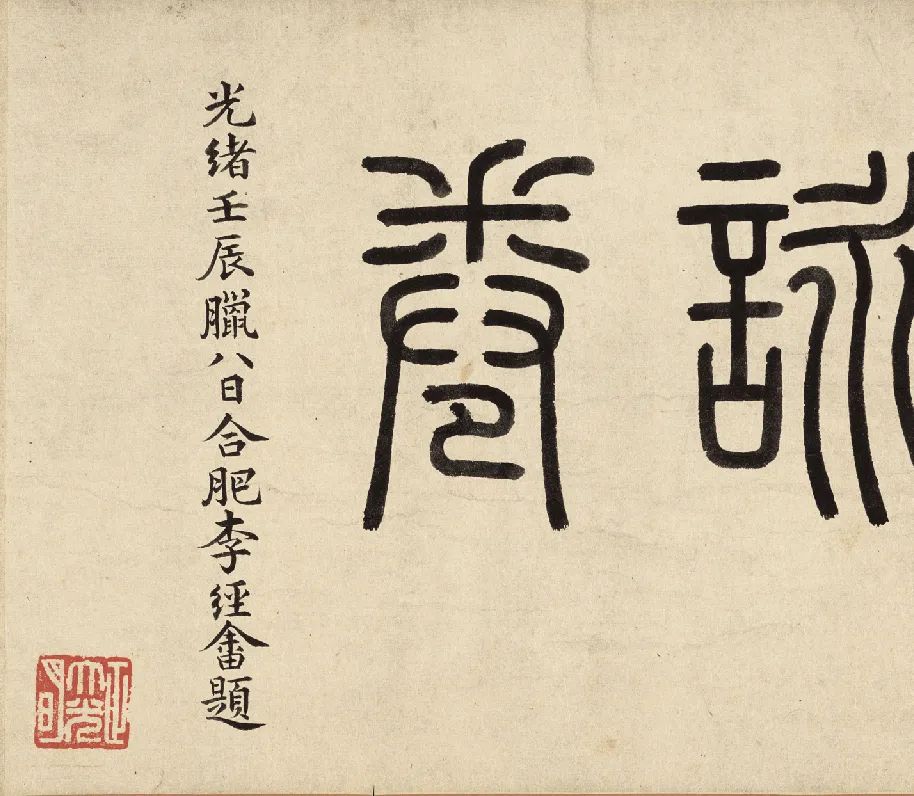 詠卷
光緒壬辰臘八日合肥李經畬題